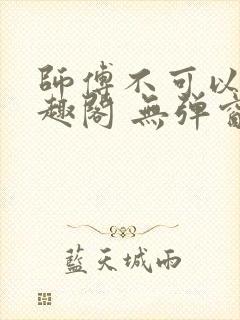 師傅不可以
趣閣 無彈窗
藍天城雨